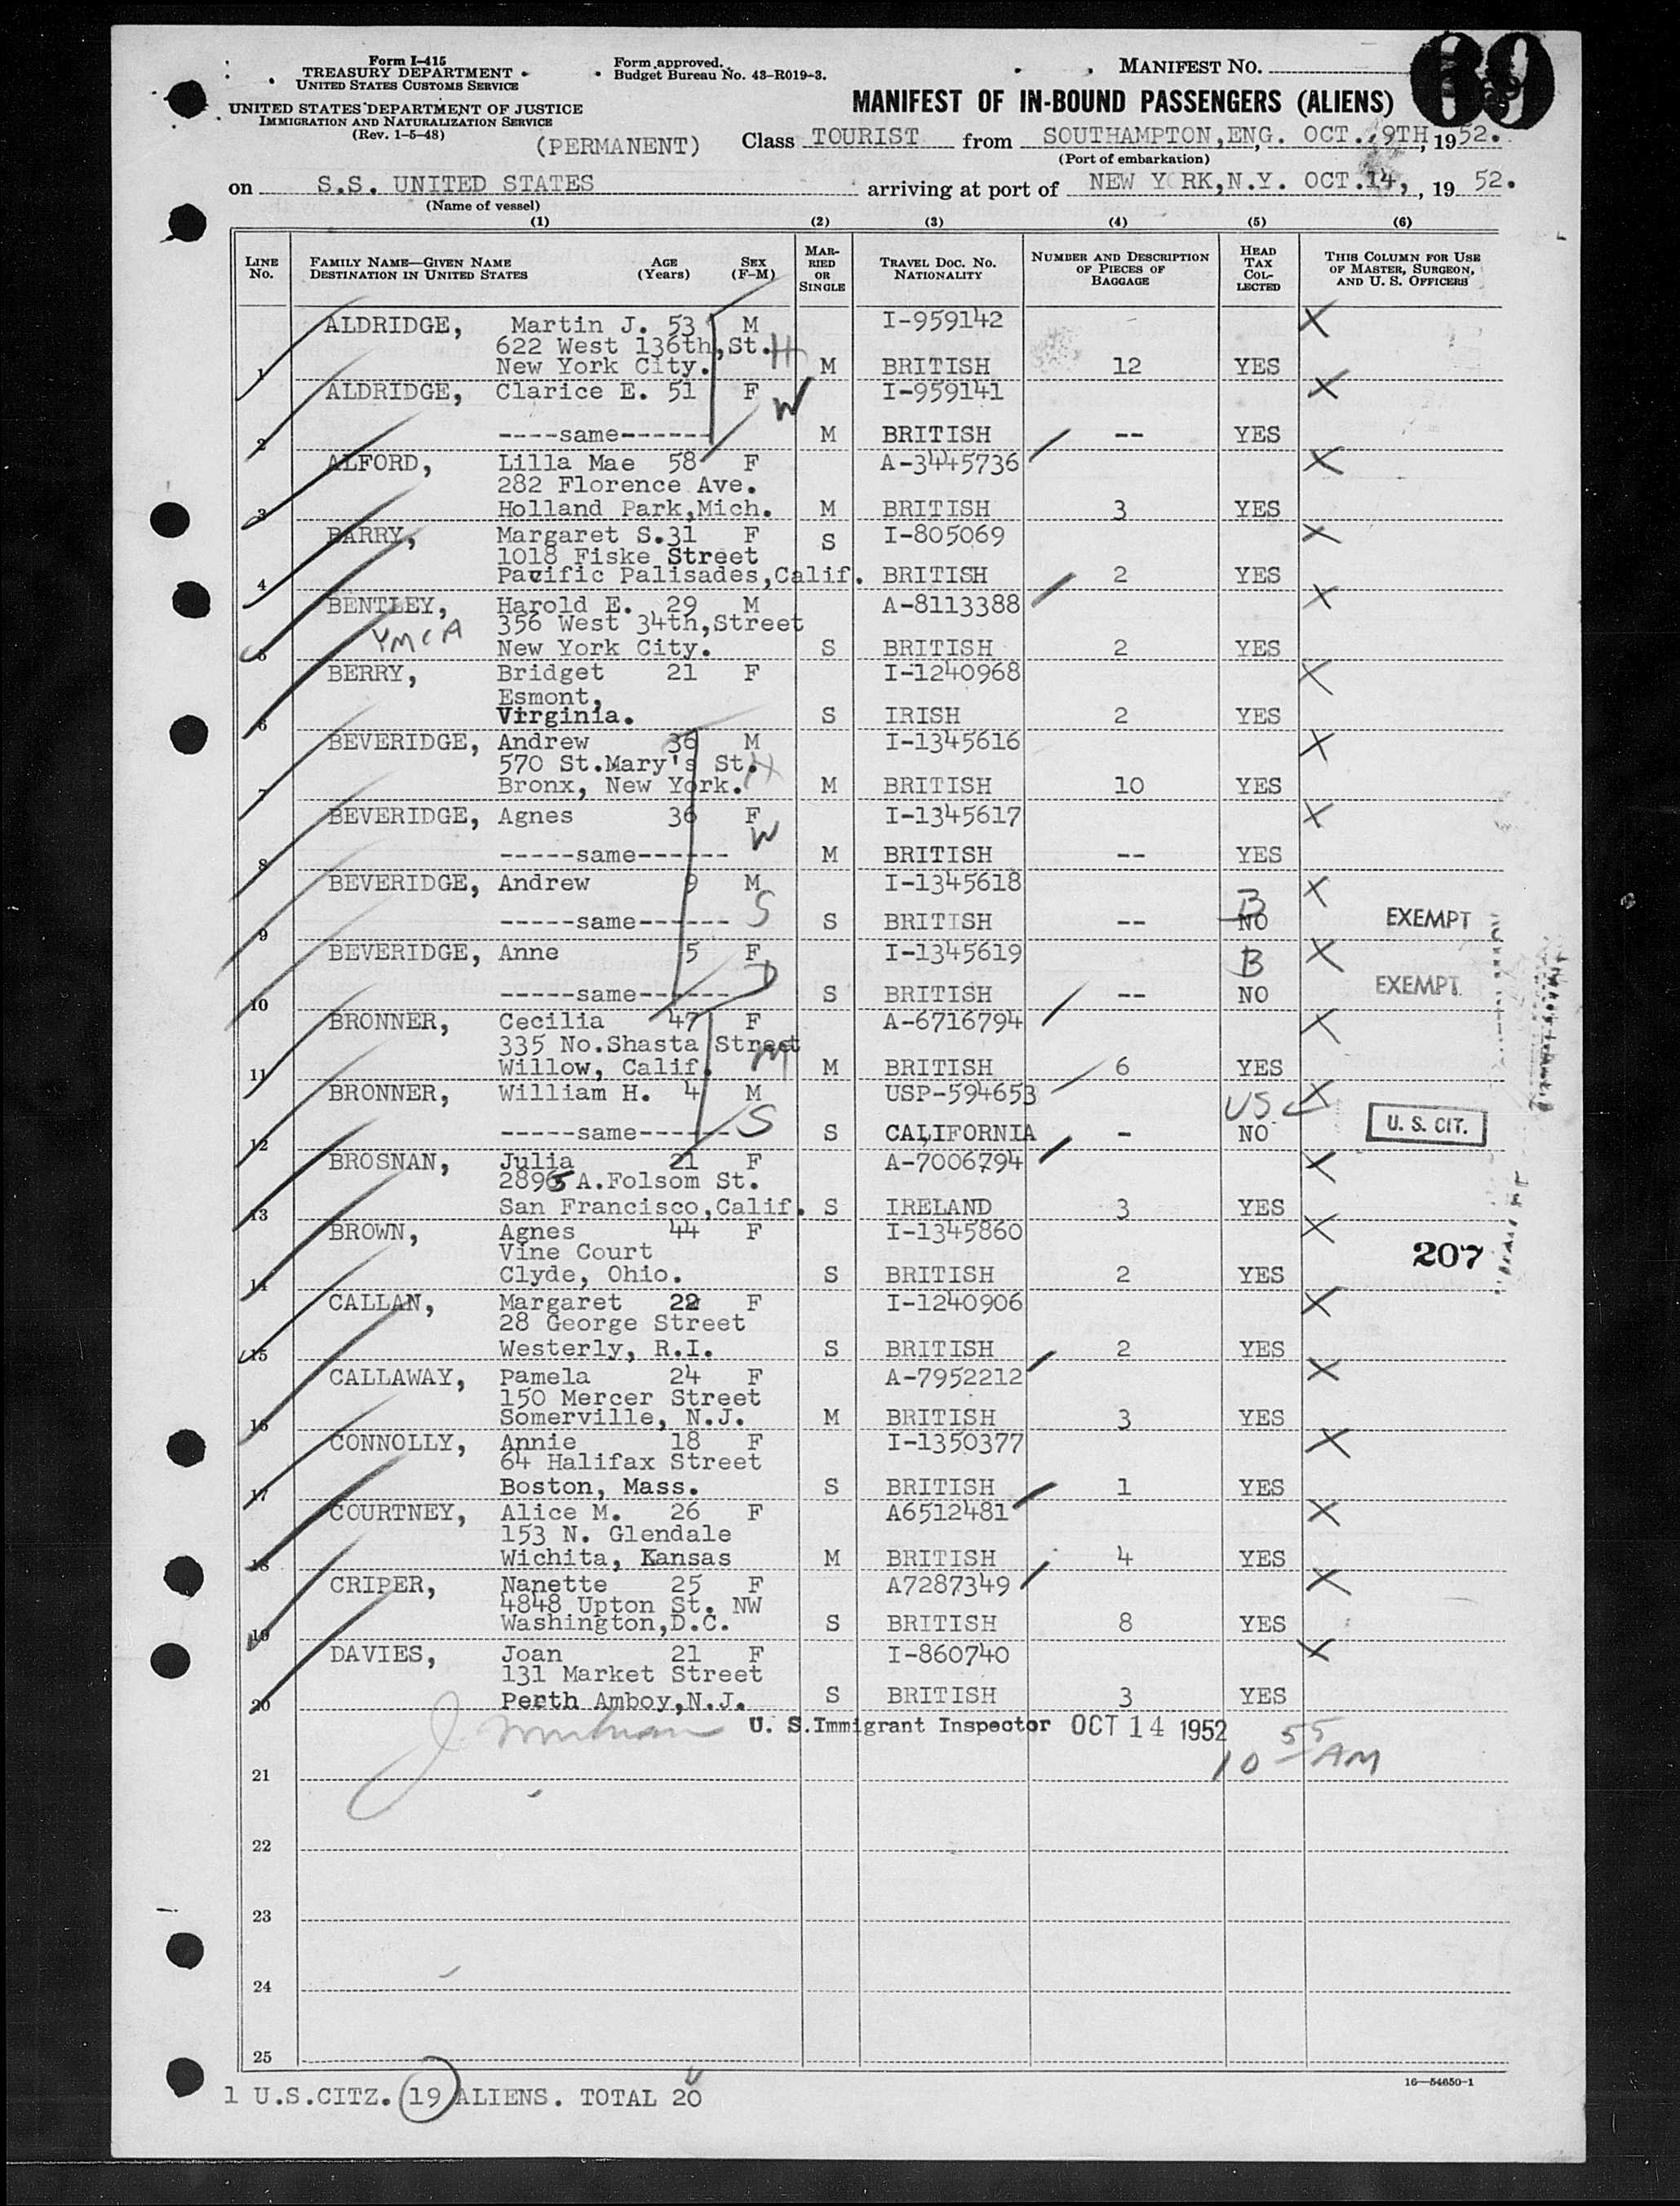 Form I-415
TREASURY DEPARTMENT
UNITED STATES CUSTOMS SERVICE
UNITED STATES DEPARTMENT OF JUSTICE
IMMIGRATION AND NATURALIZATION SERVICE
(Rev. 1-5-48)
Form approved.
Budget Bureau No. 43-R019-3.
MANIFEST NO.
69
MANIFEST OF IN-BOUND PASSENGERS (ALIENS)
(PERMANENT) Class TOURIST from SOUTHAMPTON,ENG. OCT. 9TH, 1952.
(Port of embarkation)
on S.S. UNITED STATES arriving at port of NEW Y RK,N.Y. OCT.14, , 19 52.
(Name of vessel)
(1) (2) (3) (4) (5) (6)
LINE No. FAMILY NAME—GIVEN NAME DESTINATION IN UNITED STATES AGE (Years) SEX (F-M) MARRIED OR SINGLE TRAVEL DOC. NO. NATIONALITY NUMBER AND DESCRIPTION OF PIECES OF BAGGAGE HEAD TAX COLLECTED THIS COLUMN FOR USE OF MASTER, SURGEON, AND U. S. OFFICERS
ALDRIDGE, Martin J. 53 M I-959142 X
622 West 136th,St. H
1 New York City. M BRITISH 12 YES
ALDRIDGE, Clarice E. 51 F W I-959141 X
2 ----same------ M BRITISH -- YES
ALFORD, Lilla Mae 58 F A-3445736 X
282 Florence Ave.
3 Holland Park,Mich. M BRITISH 3 YES
BARRY, Margaret S.31 F S I-805069 X
1018 Fiske Street
4 Pacific Palisades,Calif. BRITISH 2 YES
BENTLEY, Harold E. 29 M A-8113388 X
YMCA 356 West 34th,Street
5 New York City. S BRITISH 2 YES
BERRY, Bridget 21 F I-1240968 X
Esmont,
6 Virginia. S IRISH 2 YES
BEVERIDGE, Andrew 36 M I-1345616 X
570 St.Mary's St. H
7 Bronx, New York. M BRITISH 10 YES
BEVERIDGE, Agnes 36 F W I-1345617 X
8 -----same------ M BRITISH -- YES
BEVERIDGE, Andrew 9 M S I-1345618 B X
9 -----same------ S BRITISH -- NO EXEMPT
BEVERIDGE, Anne 5 F D I-1345619 B X
10 -----same------ S BRITISH -- NO EXEMPT
BRONNER, Cecilia 47 F A-6716794 X
335 No.Shasta Street M
11 Willow, Calif. M BRITISH 6 YES
BRONNER, William H. 4 M S USP-594653 US X
12 -----same------ S CALIFORNIA - NO U. S. CIT.
BROSNAN, Julia 21 F A-7006794 X
2895 A.Folsom St.
13 San Francisco,Calif. S IRELAND 3 YES
BROWN, Agnes 44 F I-1345860 X
Vine Court 207
14 Clyde, Ohio. S BRITISH 2 YES
CALLAN, Margaret 22 F I-1240906 X
28 George Street
15 Westerly, R.I. S BRITISH 2 YES
CALLAWAY, Pamela 24 F A-7952212 X
150 Mercer Street
16 Somerville, N.J. M BRITISH 3 YES
CONNOLLY, Annie 18 F I-1350377 X
64 Halifax Street
17 Boston, Mass. S BRITISH 1 YES
COURTNEY, Alice M. 26 F A6512481 X
153 N. Glendale
18 Wichita, Kansas M BRITISH 4 YES
CRIPER, Nanette 25 F A7287349 X
4848 Upton St. NW
19 Washington,D.C. S BRITISH 8 YES
DAVIES, Joan 21 F I-860740 X
131 Market Street
20 Perth Amboy,N.J. S BRITISH 3 YES
U. S. Immigrant Inspector OCT 14 1952
10 55 AM
21
22
23
24
25
16—54650-1
1 U.S.CITZ. 19 ALIENS. TOTAL 20